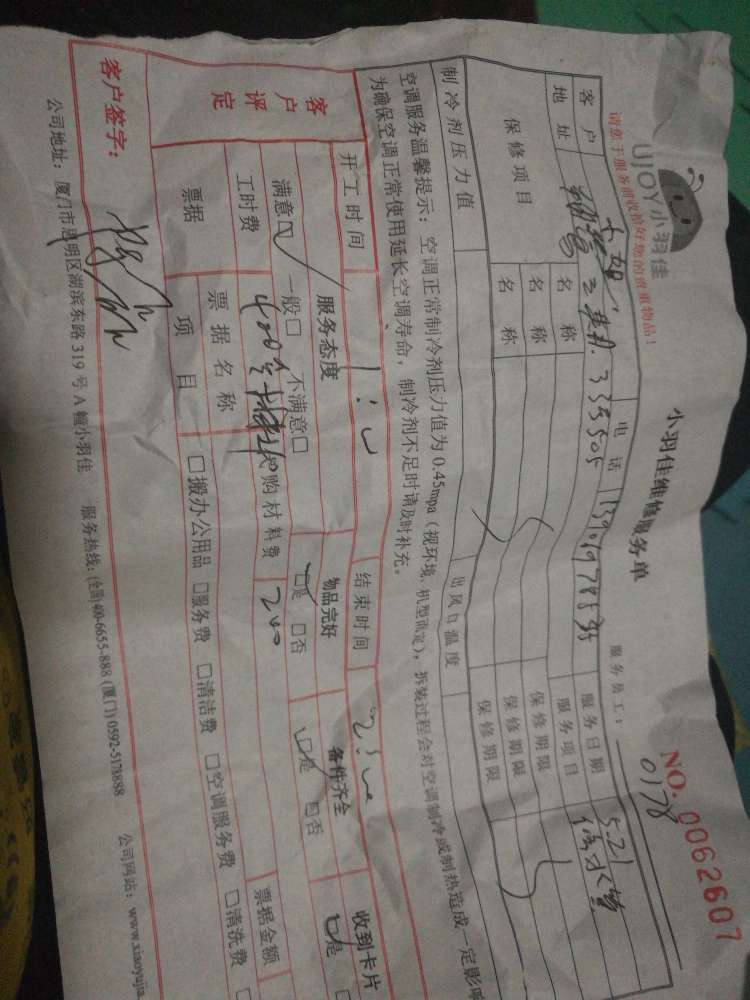 UJOY小羽佳
请您于服务前收拾好您的贵重物品！
小羽佳维修服务单
NO. 0062607
服务员工： 0178
客户 电话 服务日期 5.21
地址 335505 服务项目 修水管
保修项目 名称 保修期限
名称 保修期限
名称 保修期限
制冷剂压力值 出风口温度
空调服务温馨提示：空调正常制冷剂压力值为0.45mpa（视环境、机型而定），拆装过程会对空调制冷或制热造成一定影响
为确保空调正常使用延长空调寿命，制冷剂不足时请及时补充。
客户评定 开工时间 结束时间
服务态度 物品完好 备件齐全 收到卡片
满意□ 一般□ 不满意□ □是 □否 □是 □否 □是
工时费 代购材料费 200
票据 票据名称 票据金额
项目 □搬办公用品 □服务费 □清洁费 □空调服务费 □清洗费
客户签字：
公司地址：厦门市思明区湖滨东路319号A幢小羽佳 服务热线：(全国)400-6655-888 (厦门) 0592-5178888 公司网站：www.xiaoyujia.